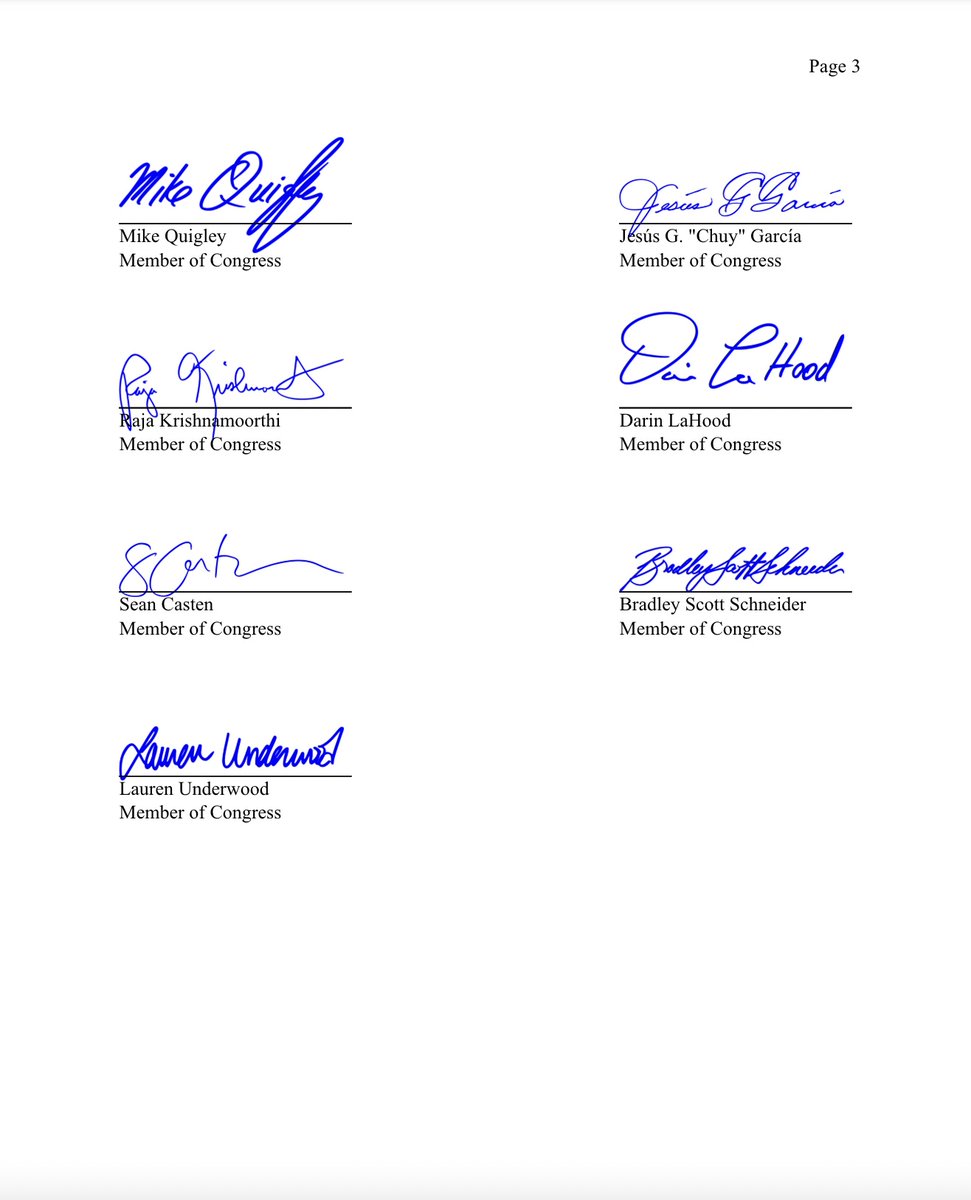 Page 3
Mike Quigley
Mike Quigley
Member of Congress
Jesús G García
Jesús G. "Chuy" García
Member of Congress
Raja Krishnamoorthi
Member of Congress
Darin LaHood
Darin LaHood
Member of Congress
S Casten
Sean Casten
Member of Congress
Bradley Scott Schneider
Bradley Scott Schneider
Member of Congress
Lauren Underwood
Lauren Underwood
Member of Congress